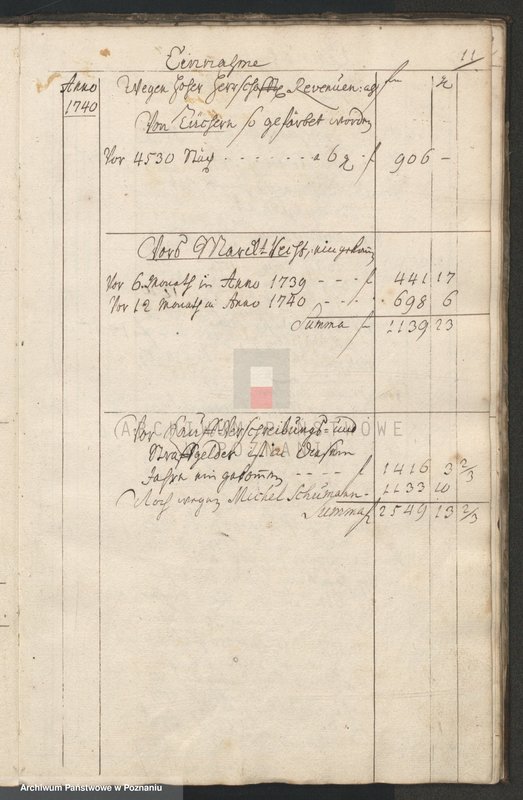 Einnahme
11
Anno
1740
Wegen hoher Herrschafftl. Revenüen: als
fl
Von Tüchern so gefärbet worden
Vor 4530 Stück - - - - a 6 g. f 906 -
Vors Marckt Recht, eingekom
Vor 6 Monath in Anno 1739 - - - f 441 17
Vor 12 Monath in Anno 1740 - - - 698 6
Summa f 1139 23
Vor Kauff Verschreibungs- und
Straffgelder
Jahre eingekommen - - - - f 1416 3 2/3
Noch wegen Michel Schumann - 1133 10
Summa f 2549 13 2/3
ARCHIWUM PAŃSTWOWE
W POZNANIU
Archiwum Państwowe w Poznaniu